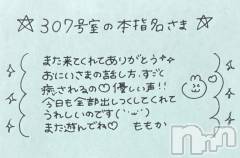 ☆307号室の本指名さま☆
また来てくれてありがとう
おにいさまの話し方、すごく
癒されるの♡優しい声!!
今日も全部出しつくしてくれて
うれしいのです(˙꒳˙)
また遊んでね♡ ももか